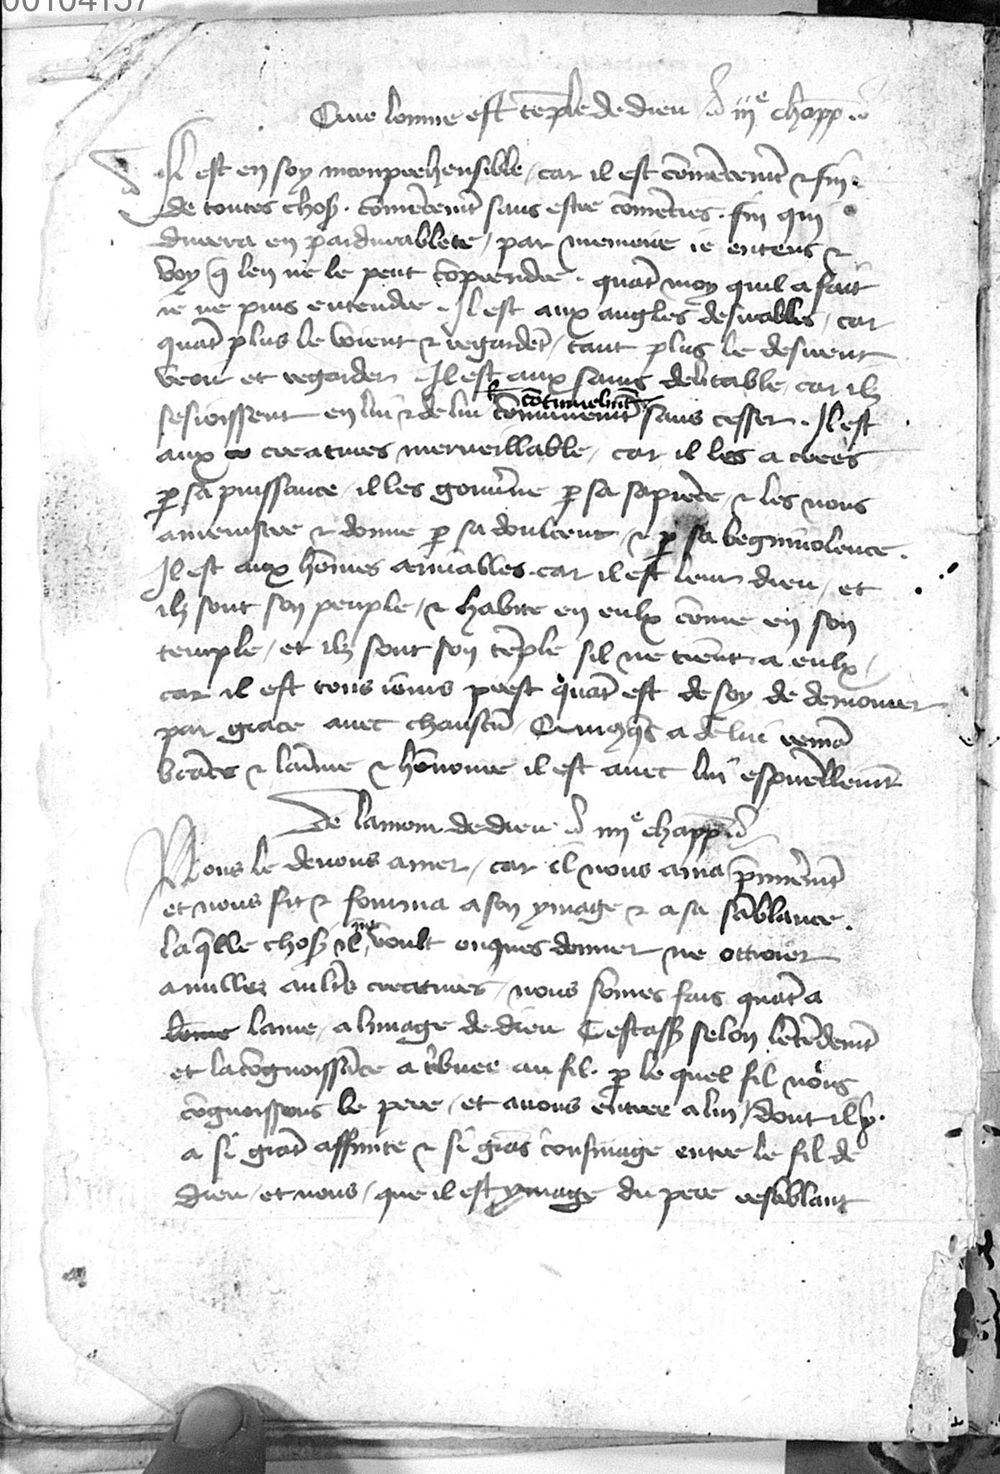 00104157
Que lomme est temple de dieu iii e chapp
Il est en soy inconprehensible / car il est commencement & fin
de toutes chos . commencemt sans estre commencies . fin qui
durera en pardurablete / par memoire ie entens &
voy q len ne le peut comprendre . quāt moy quil a fait
ie ne puis entendre . Il est aux angles desirables / car
quāt plus le voient & regardēt / tant plus le desirent
veoir et regarder . Il est aux sains delitable / car ilz
sesioissent en lui & de lui continuelmt sans cesser . Il est
aux creatures merueillable / car il les a crees
p sa puissance / il les gouuerne p sa sapience / & les nous
amenistre & donne p sa doulceur / & p sa begniuolence .
Il est aux hōmes amiables . car il est leur dieu / et
ilz sont son peuple / & habite en eulx cōme en son
temple / et ilz sont son tēple sil ne tient a eulx /
car il est tous iours prest quāt est de soy de demourer
par grace auec chascū / Quicōqs a de lui remā
brāce & laime & hōnoure il est auec lui espouellemt
De lamour de dieu iiii e chapp
Nous le deuons amer / car il nous ama primeremt
et nous fit & fourma a son ymage & a sa sāblance .
la qlle chos il ne voult onques donner ne ottroier
a nulles aultres creatures / nous somes fais quāt a
lame / a limage de dieu Cestass selon lētēdemt
et la cōgnoissāce atribuee au fil . p le quel fil nous
cōgnoissons le pere / et auons entree a lui / dont il y
a si grāt affinite & si grās cousinage entre le fil de
dieu / et nous / que il est ymage du pere resāblant